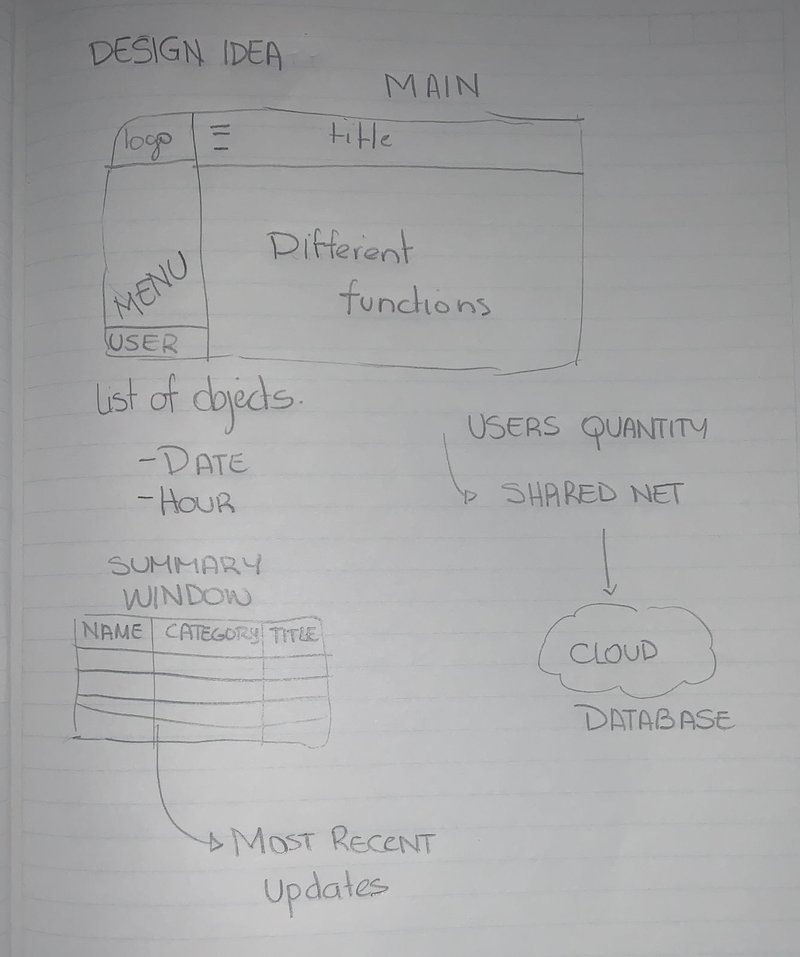 DESIGN IDEA
MAIN
logo
title
MENU
Different
functions
USER
list of objects.
- DATE
- HOUR
USERS QUANTITY
SHARED NET
CLOUD
DATABASE
SUMMARY
WINDOW
NAME CATEGORY TITLE
MOST RECENT
Updates